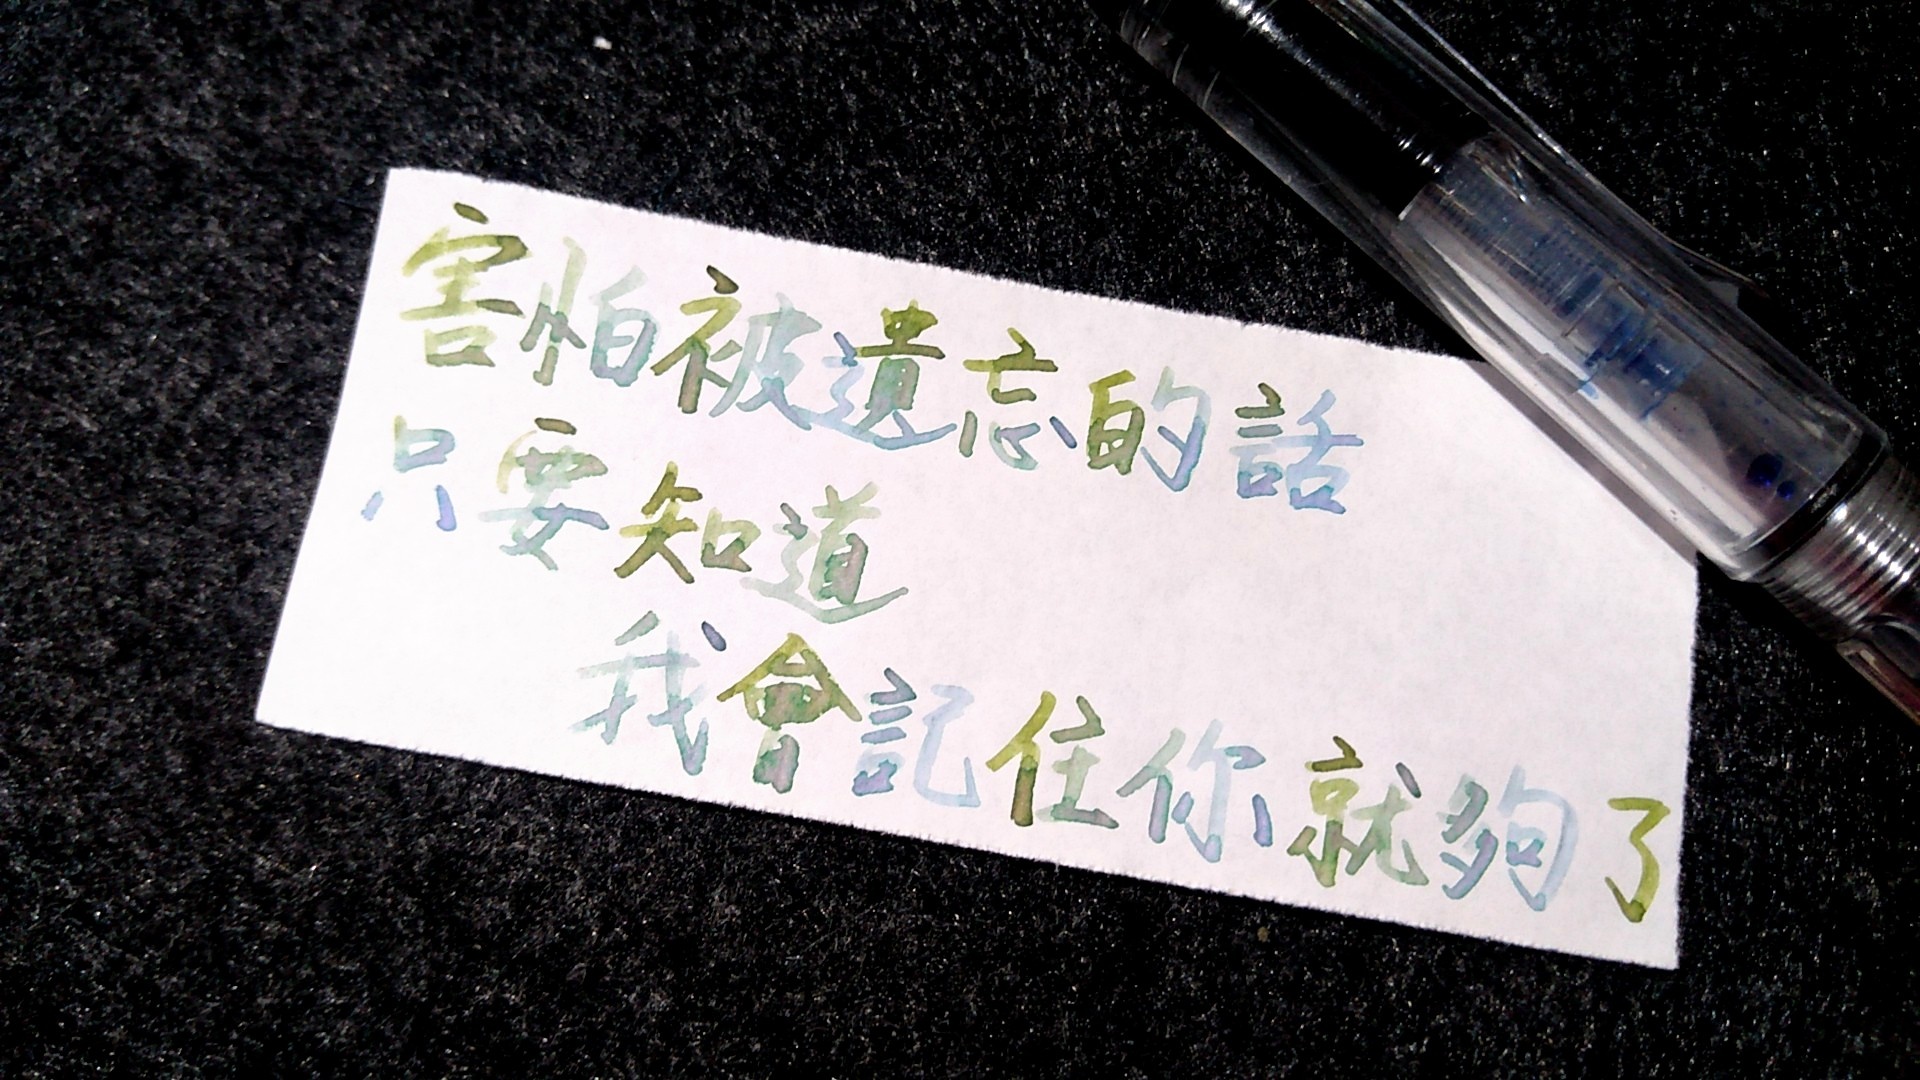 害怕被遺忘的話
只要知道
我會記住你就夠了